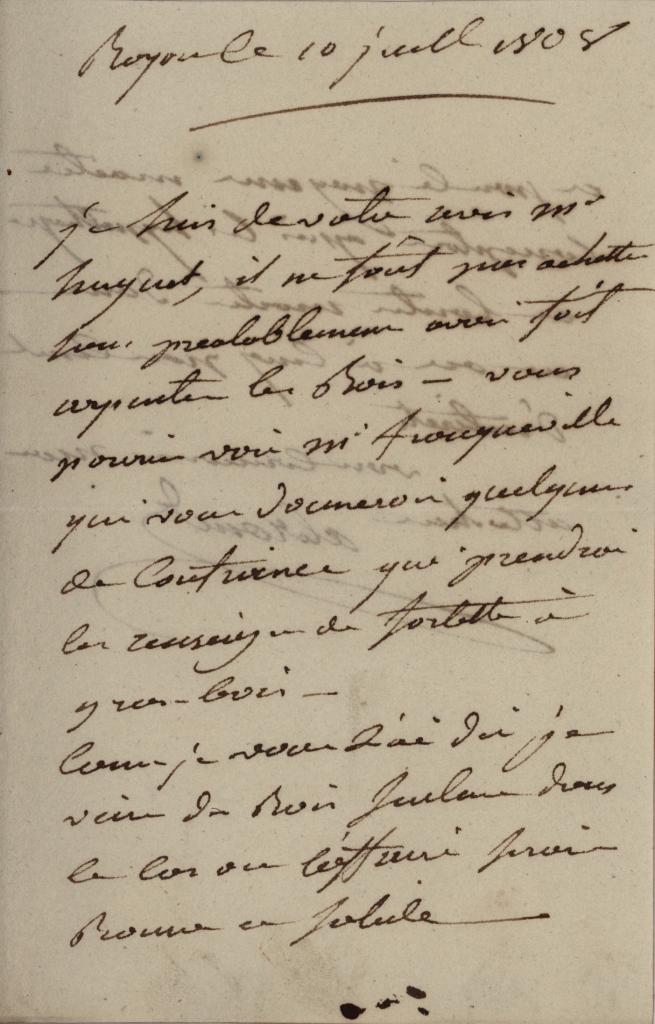 le 10 juill 1808
je suis de votre avis mr
huguet, il ne faut pas achetter
sans prealablement avoir fait
arpenter les Bois — vous
pourrié voir mr franqueville
qui vous donneroit quelquun
de Confience qui prendroi
les renseig de forlette à
gros-bois —
Come je vous l'ai dit je
de Bois seulem dans
le cas ou l'affaire seroi
Bonne e solide